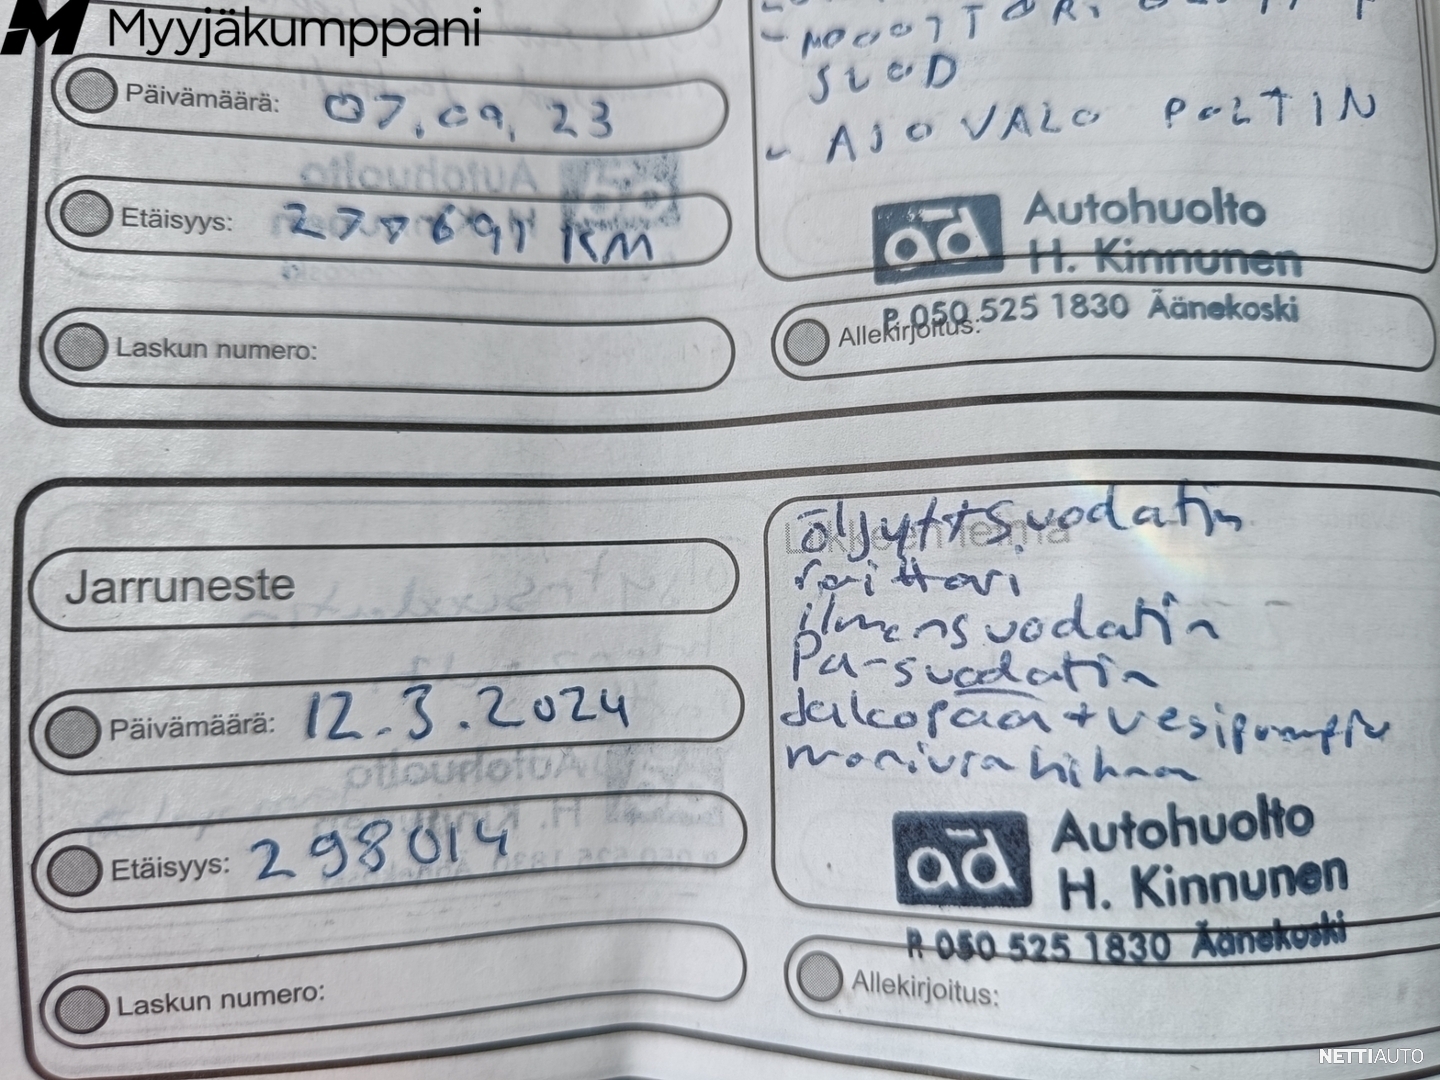 Myyjäkumppani
Päivämäärä: 07.09.23
Etäisyys: 277691 KM
Laskun numero:
SUOD
- AJOVALO POLTIN
Autohuolto
H. Kinnunen
P. 050 525 1830 Äänekoski
Allekirjoitus:
Jarruneste
Päivämäärä: 12.3.2024
Etäisyys: 298014
Laskun numero:
öljyt+suodatin
raittari
ilmansuodatin
Pa-suodatin
Jakopää + vesipumppu
moniurahihna
Autohuolto
H. Kinnunen
P. 050 525 1830 Äänekoski
Allekirjoitus:
NETTIAUTO